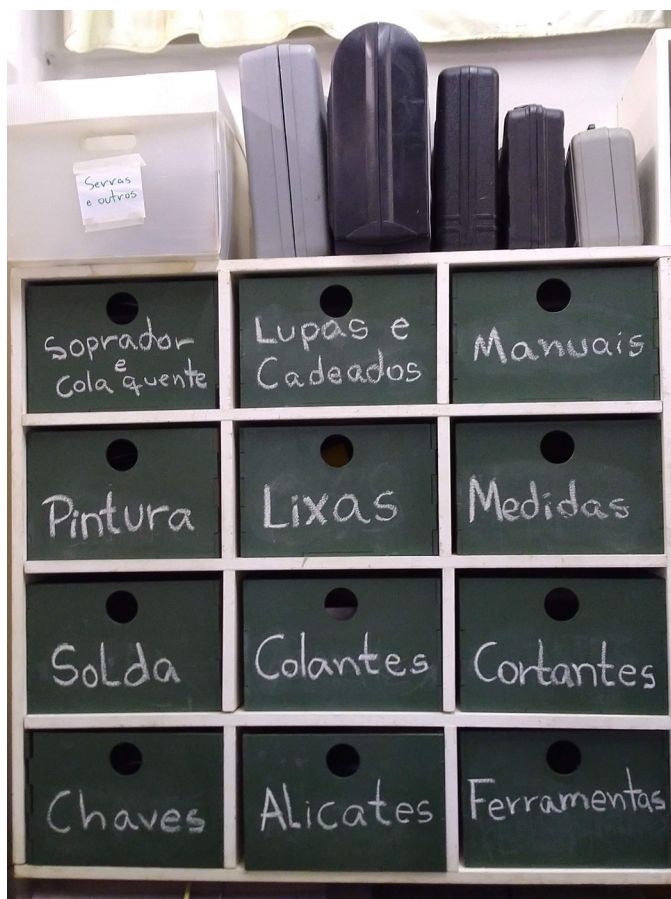 Serras
e outros
Soprador
e
Cola quente
Lupas e
Cadeados
Manuais
Pintura
Lixas
Medidas
Solda
Colantes
Cortantes
Chaves
Alicates
Ferramentas